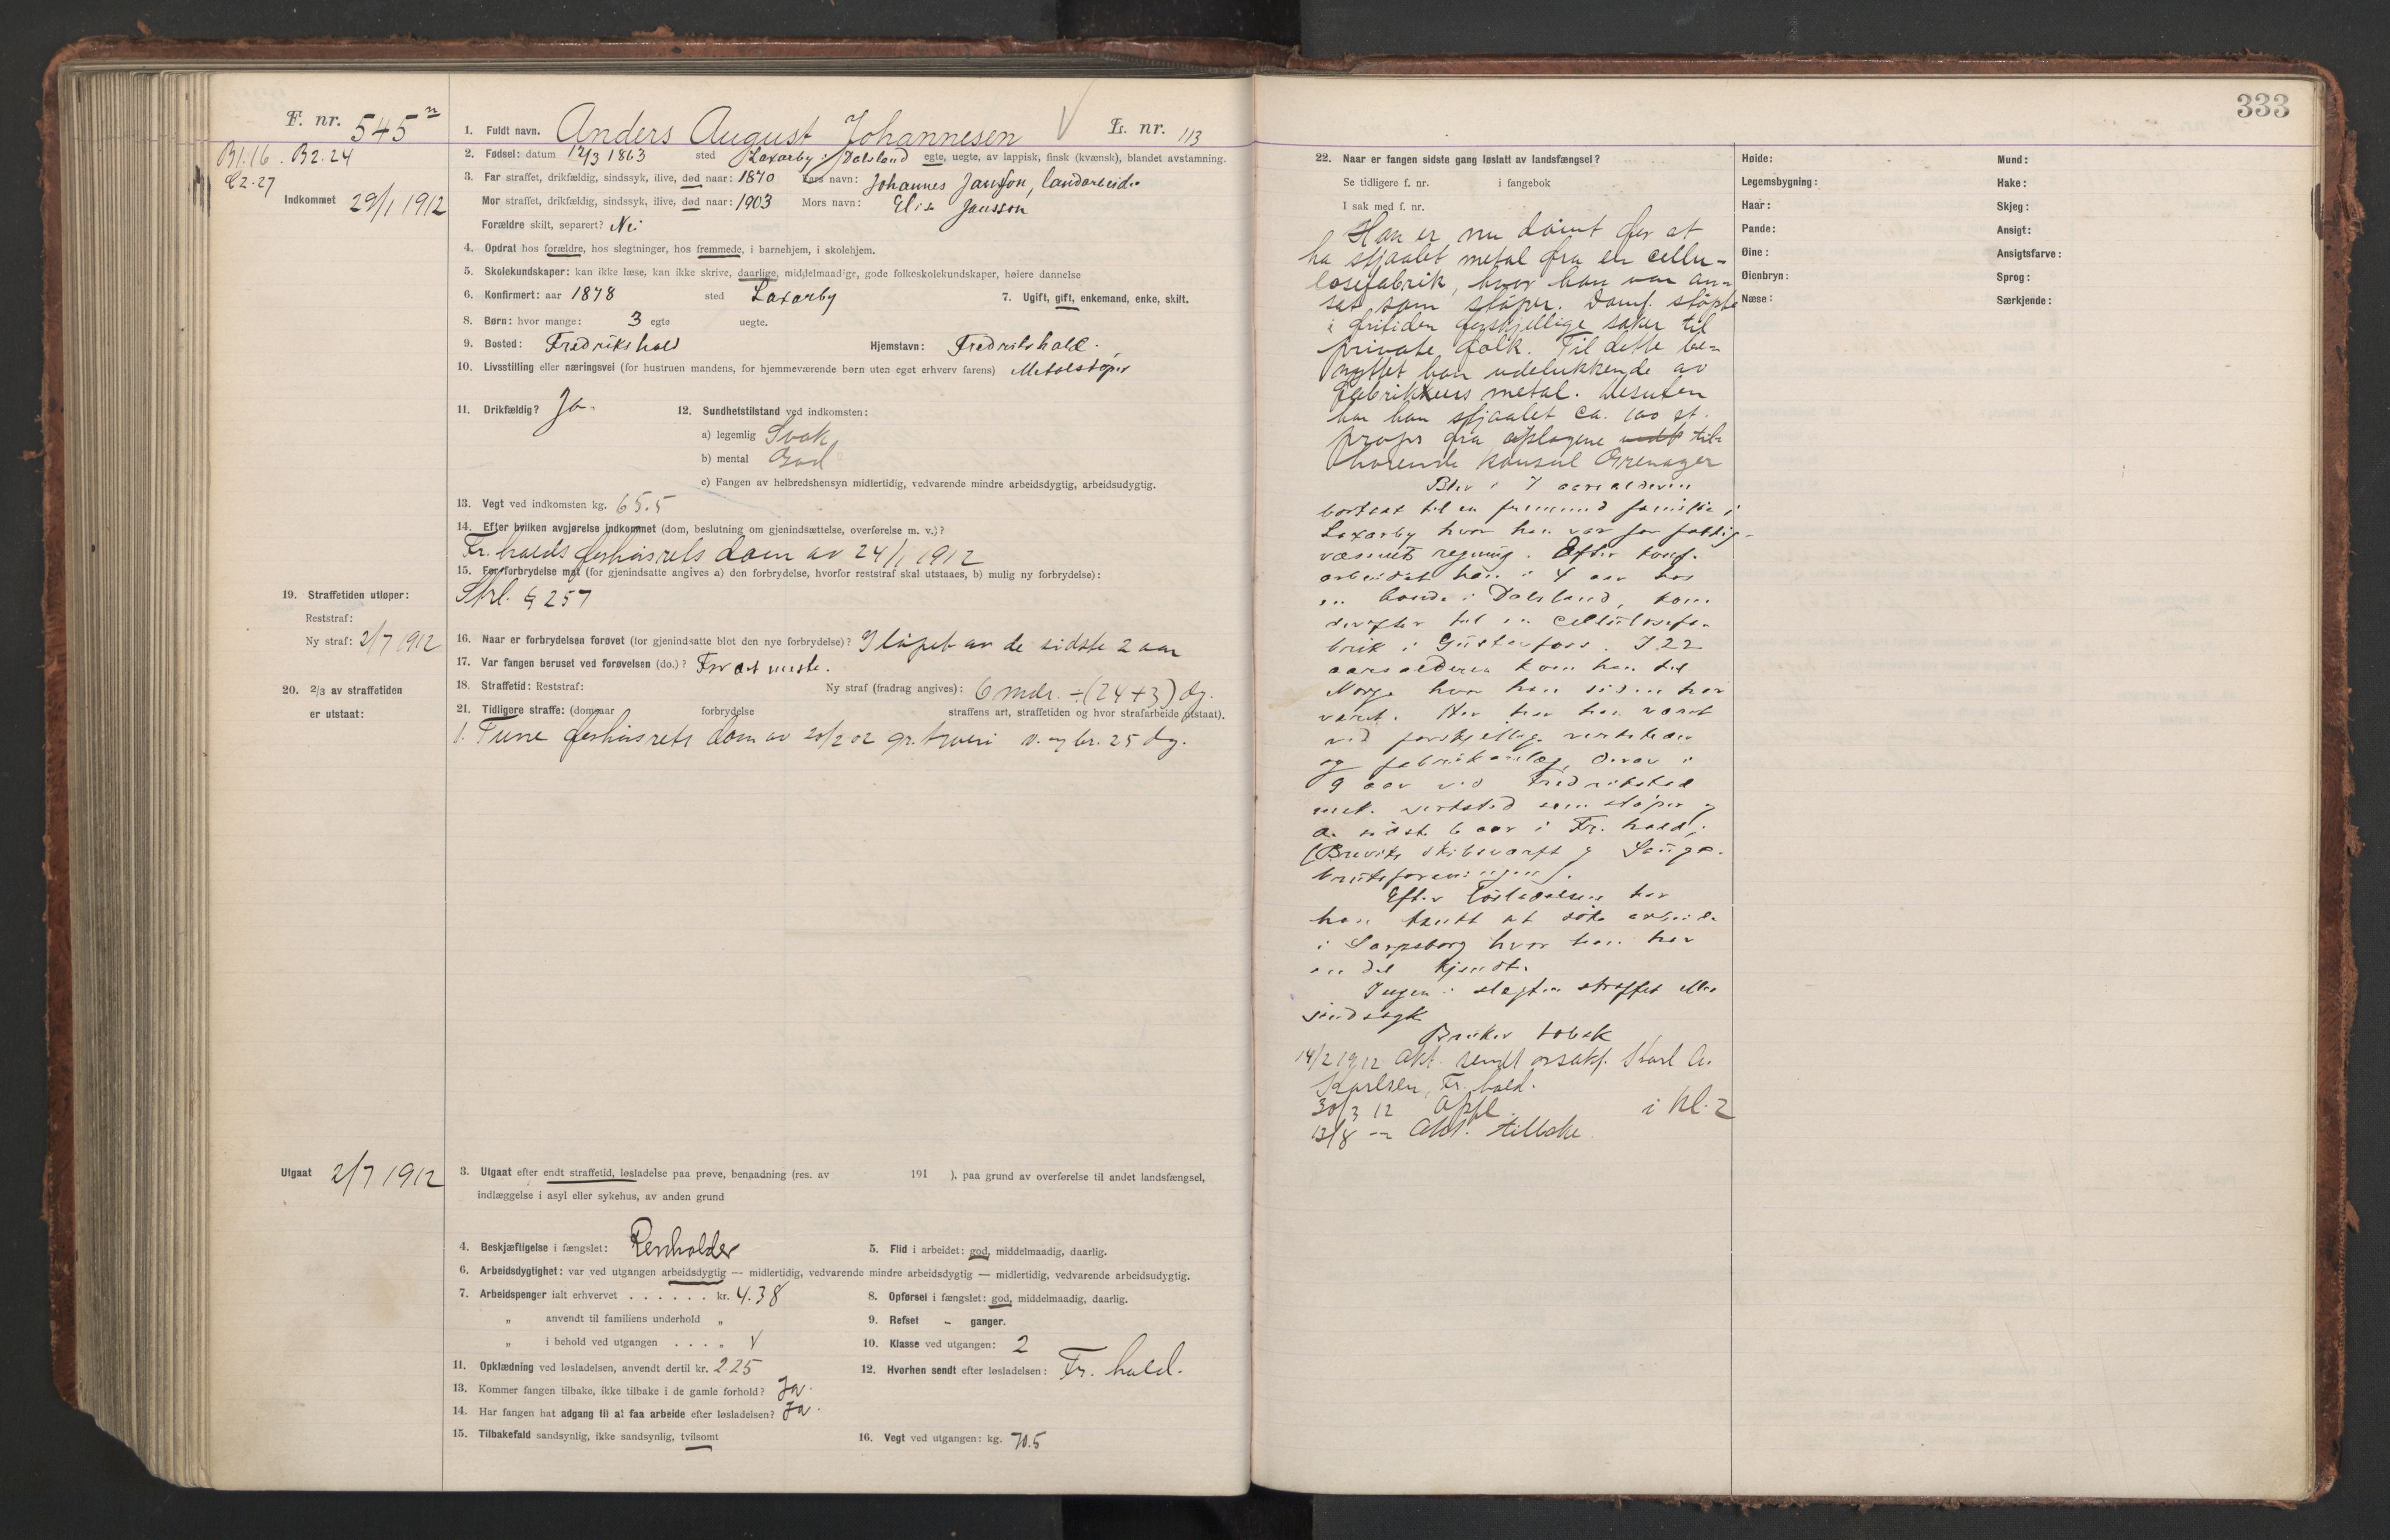 333
F. nr. 545 n
1. Fuldt navn. Anders August Johannesen V L. nr. 113
B1.16. B2.24
2. Fødsel: datum 12/3 1863 sted Laxarby i Dalsland egte, uegte, av lappisk, finsk (kvænsk), blandet avstamning.
C2.27
3. Far straffet, drikfældig, sindssyk, ilive, død naar: 1870 Fars navn: Johannes Jansson, landarbeider
Indkommet 29/1 1912
Mor straffet, drikfældig, sindssyk, ilive, død naar: 1903 Mors navn: Elise Jansson
Forældre skilt, separert? Nei
4. Opdrat hos forældre, hos slegtninger, hos fremmede, i barnehjem, i skolehjem.
5. Skolekundskaper: kan ikke læse, kan ikke skrive, daarlige, middelmaadige, gode folkeskolekundskaper, høiere dannelse
6. Konfirmert: aar 1878 sted Laxarby 7. Ugift, gift, enkemand, enke, skilt.
8. Børn: hvor mange: 3 egte uegte.
9. Bosted: Fredrikshald Hjemstavn: Fredrikshald.
10. Livsstilling eller næringsvei (for hustruen mandens, for hjemmeværende børn uten eget erhverv farens) Metalstøper
11. Drikfældig? Ja. 12. Sundhetstilstand ved indkomsten:
a) legemlig Svak
b) mental God
c) Fangen av helbredshensyn midlertidig, vedvarende mindre arbeidsdygtig, arbeidsudygtig.
13. Vegt ved indkomsten kg. 65.5
14. Efter hvilken avgjørelse indkommet (dom, beslutning om gjenindsættelse, overførelse m. v.)?
Fr.halds forhørsrets dom av 24/1 1912
15. For forbrydelse mot (for gjenindsatte angives a) den forbrydelse, hvorfor reststraf skal utstaaes, b) mulig ny forbrydelse):
Strl. § 257
19. Straffetiden utløper:
Reststraf:
Ny straf: 2/7 1912
16. Naar er forbrydelsen forøvet (for gjenindsatte blot den nye forbrydelse)? I løpet av de sidste 2 aar
17. Var fangen beruset ved forøvelsen (do.)? For det meste.
18. Straffetid: Reststraf: Ny straf (fradrag angives): 6 mdr. ÷ (24+3) dg.
20. 2/3 av straffetiden
er utstaat:
21. Tidligere straffe: (domsaar forbrydelse straffens art, straffetiden og hvor strafarbeide utstaat).
1. Tune forhørsrets dom av 20/2 02 gr. tyveri v. og br. 25 dg.
Utgaat 2/7 1912
3. Utgaat efter endt straffetid, løsladelse paa prøve, benaadning (res. av 191 ), paa grund av overførelse til andet landsfængsel,
indlæggelse i asyl eller sykehus, av anden grund
4. Beskjæftigelse i fængslet: Renholder 5. Flid i arbeidet: god, middelmaadig, daarlig.
6. Arbeidsdygtighet: var ved utgangen arbeidsdygtig — midlertidig, vedvarende mindre arbeidsdygtig — midlertidig, vedvarende arbeidsudygtig.
7. Arbeidspenger ialt erhvervet . . . . . . kr. 4.38 8. Opførsel i fængslet: god, middelmaadig, daarlig.
„ anvendt til familiens underhold „ 9. Refset - ganger.
„ i behold ved utgangen . . . . „ V 10. Klasse ved utgangen: 2
11. Opklædning ved løsladelsen, anvendt dertil kr. 2.25 12. Hvorhen sendt efter løsladelsen: Fr. hald.
13. Kommer fangen tilbake, ikke tilbake i de gamle forhold? Ja.
14. Har fangen hat adgang til at faa arbeide efter løsladelsen? Ja.
15. Tilbakefald sandsynlig, ikke sandsynlig, tvilsomt 16. Vegt ved utgangen: kg. 70.5
22. Naar er fangen sidste gang løslatt av landsfængsel?
Se tidligere f. nr. i fangebok
I sak med f. nr.
Han er nu dømt for at
ha stjaalet metal fra en cellu-
losefabrik, hvor han var an-
sat som støper. Domf. støpte
i fritiden forskjellige saker til
private folk. Til dette be-
nyttet han udelukkende av
fabrikkens metal. Desuten
har han stjaalet ca. 100 st.
props fra oplagene til-
hørende konsul Grenager
Blev i 7 aarsalderen
bortsat til en fremmed familie i
Laxarby hvor han var for fattig-
væsnets regning. Efter konf.
arbeidet han i 4 aar hos
en bonde i Dalsland, kom
derefter til en cellulosefa-
brik i Gustavfors. I 22
aarsalderen kom han til
Norge hvor han siden har
været. Her har han været
ved forskjellige verksteder
og fabrikanlæg, derav i
9 aar ved Fredrikstad
mek. verksted som støper og
de sidste 6 aar i Fr. hald,
(Breviks skibsværft og Sauge-
brugsforeningen).
Efter løsladelsen har
han tænkt at søke arbeide
i Sarpsborg hvor han har
en del kjendt.
Ingen i slegten straffet eller
sindssyk
Bruker tobak
14/2 1912 Akt. sendt orsakf. Karl A.
Karlsen, Fr. hald.
30/3 12 Opfl. i kl. 2
13/8 — Akt. tilbake.
Høide: Mund:
Legemsbygning: Hake:
Haar: Skjeg:
Pande: Ansigt:
Øine: Ansigtsfarve:
Øienbryn: Sprog:
Næse: Særkjende: